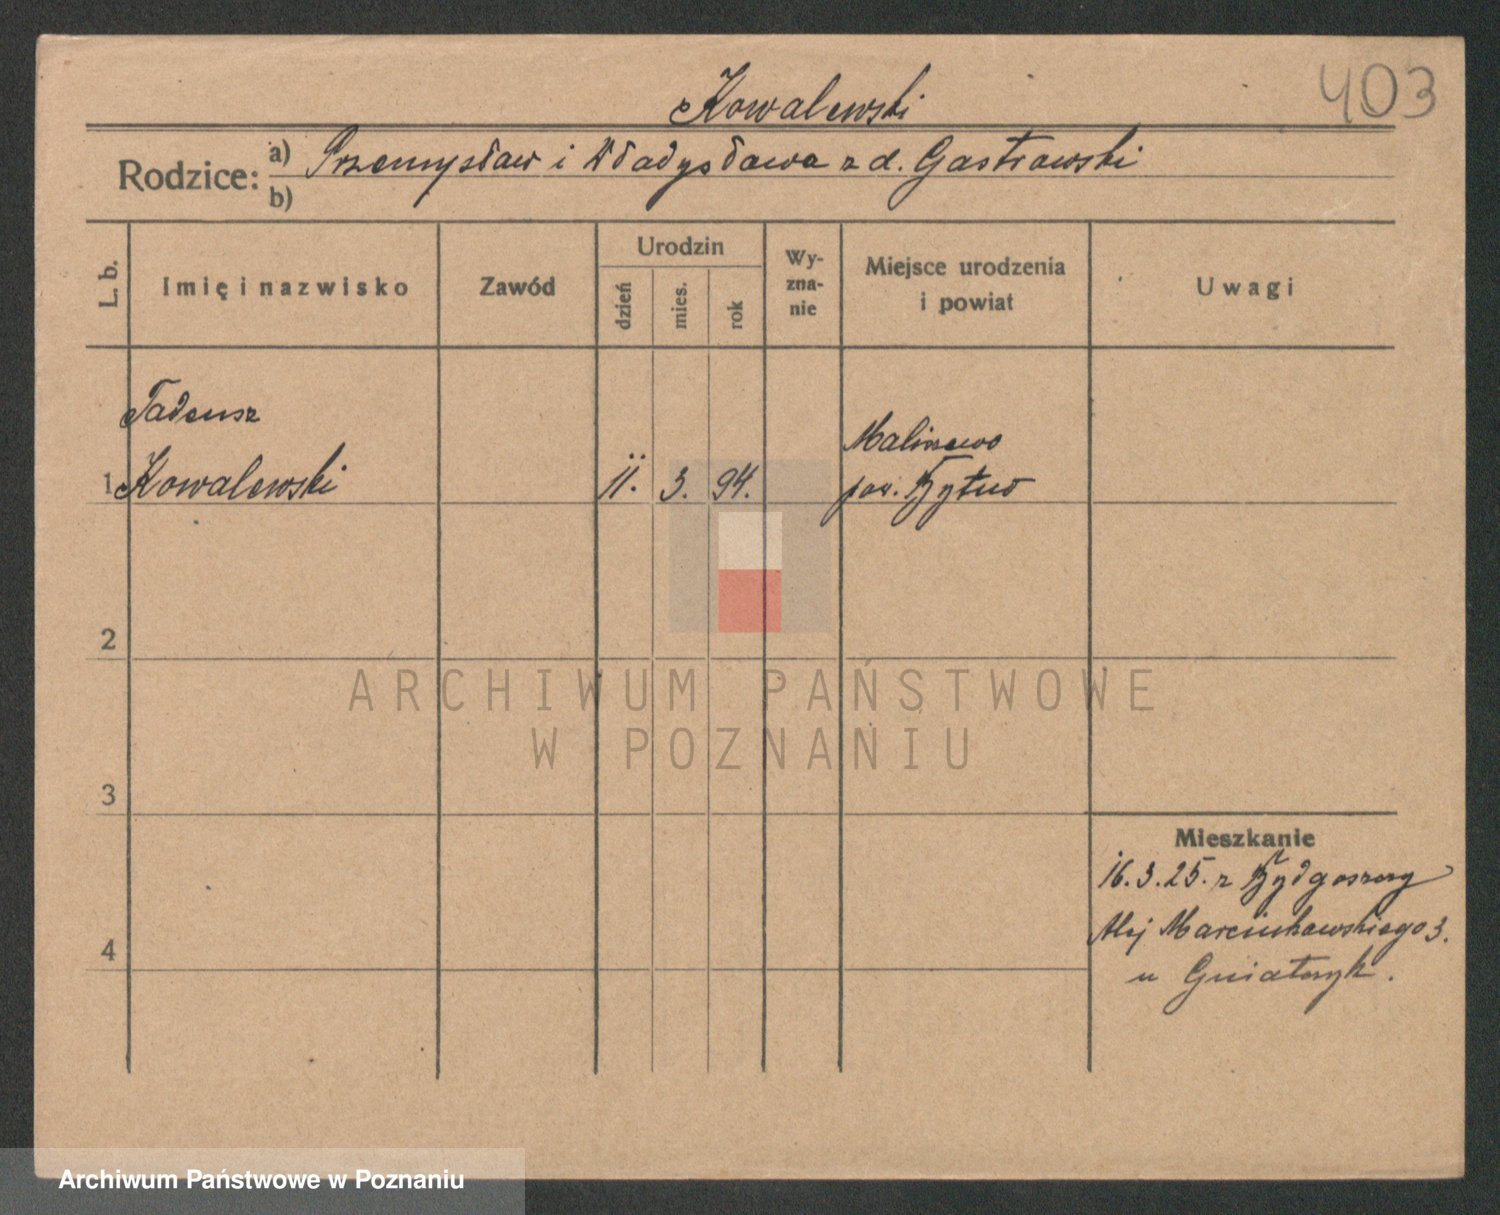 403
Kowalewski
Rodzice: a) Przemysław i Władysława z d. Gastrowski
b)
L. b.
Imię i nazwisko
Zawód
Urodzin
dzień
mies.
rok
Wy-
zna-
nie
Miejsce urodzenia
i powiat
Uwagi
Tadeusz
1 Kowalewski 11. 3. 94.
Malinowo
pow. Bytów
2
ARCHIWUM PAŃSTWOWE
W POZNANIU
3
Mieszkanie
16.3.25. z Bydgoszczy
Alej Marcinkowskiego 3.
4
u
Archiwum Państwowe w Poznaniu